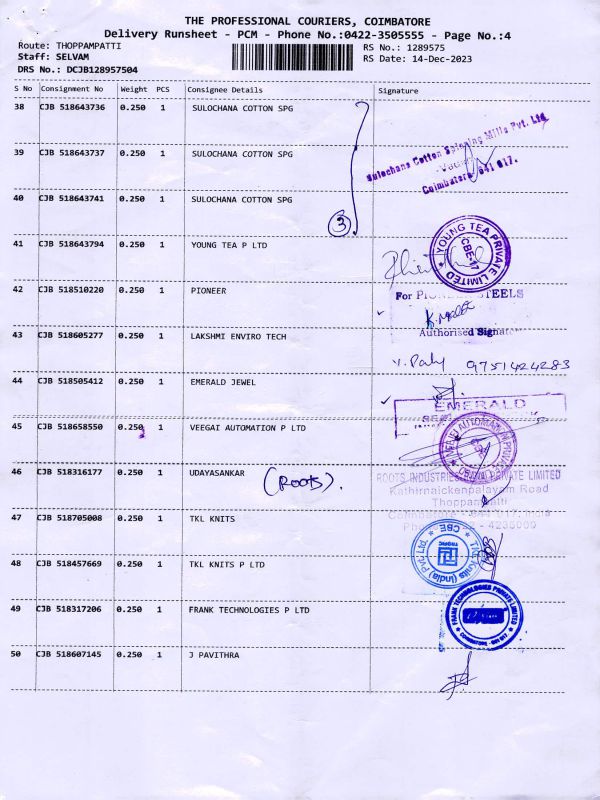 THE PROFESSIONAL COURIERS, COIMBATORE
Delivery Runsheet - PCM - Phone No.:0422-3505555 - Page No.:4
Route: THOPPAMPATTI RS No.: 1289575
Staff: SELVAM RS Date: 14-Dec-2023
DRS No.: DCJB128957504
S No Consignment No Weight PCS Consignee Details Signature
38 CJB 518643736 0.250 1 SULOCHANA COTTON SPG
Sulochana Cotton Spinning Mills Pvt. Ltd.
39 CJB 518643737 0.250 1 SULOCHANA COTTON SPG
Coimbatore 641 017.
40 CJB 518643741 0.250 1 SULOCHANA COTTON SPG
3
41 CJB 518643794 0.250 1 YOUNG TEA P LTD
YOUNG TEA PRIVATE LIMITED
CBE-17
42 CJB 518510220 0.250 1 PIONEER
For PIONEER STEELS
Authorised Signatory
43 CJB 518605277 0.250 1 LAKSHMI ENVIRO TECH
9751424283
44 CJB 518505412 0.250 1 EMERALD JEWEL
EMERALD
45 CJB 518658550 0.250 1 VEEGAI AUTOMATION P LTD
46 CJB 518316177 0.250 1 UDAYASANKAR (ROOTS).
ROOTS INDUSTRIES INDIA PRIVATE LIMITED
Kathirnaickenpalayam Road
Thoppampatti
Coimbatore - 641 017, India
47 CJB 518705008 0.250 1 TKL KNITS
48 CJB 518457669 0.250 1 TKL KNITS P LTD
TKL Knits (India) Pvt Ltd.
CBE
49 CJB 518317206 0.250 1 FRANK TECHNOLOGIES P LTD
FRANK TECHNOLOGIES PRIVATE LIMITED
COIMBATORE - 641 017
50 CJB 518607145 0.250 1 J PAVITHRA